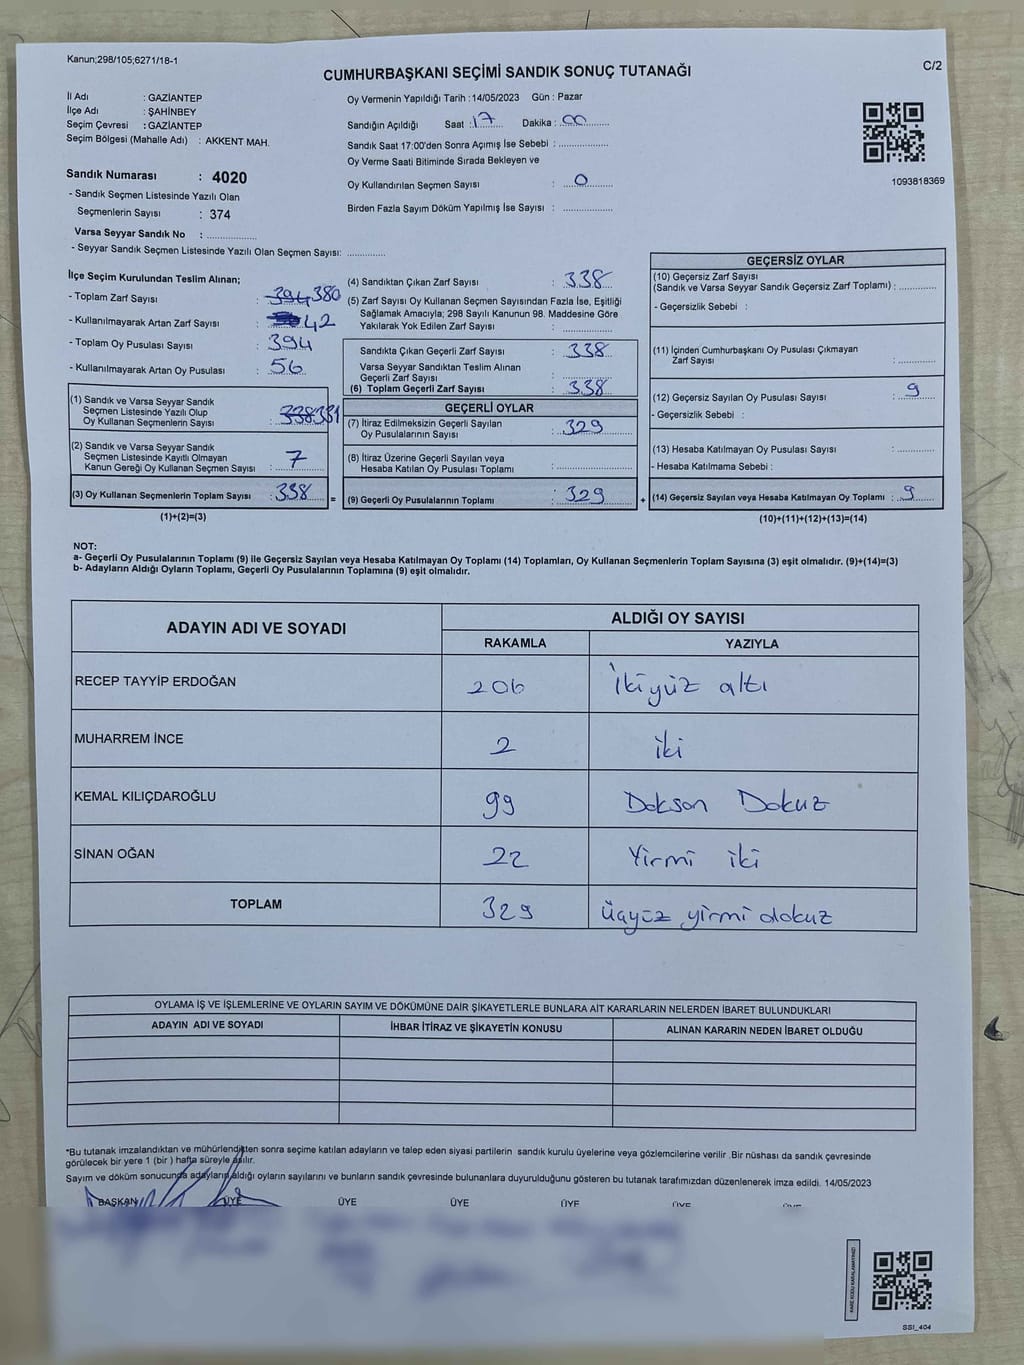 Kanun;298/105;6271/18-1
CUMHURBAŞKANI SEÇİMİ SANDIK SONUÇ TUTANAĞI
C/2
İl Adı : GAZİANTEP
İlçe Adı : ŞAHİNBEY
Seçim Çevresi : GAZİANTEP
Seçim Bölgesi (Mahalle Adı) : AKKENT MAH.
Sandık Numarası : 4020
- Sandık Seçmen Listesinde Yazılı Olan
Seçmenlerin Sayısı : 374
Varsa Seyyar Sandık No : ..............
- Seyyar Sandık Seçmen Listesinde Yazılı Olan Seçmen Sayısı: ............
Oy Vermenin Yapıldığı Tarih :14/05/2023 Gün : Pazar
Sandığın Açıldığı Saat : 17 Dakika : 00
Sandık Saat 17:00'den Sonra Açımış İse Sebebi : ..............
Oy Verme Saati Bitiminde Sırada Bekleyen ve
Oy Kullandırılan Seçmen Sayısı : 0
Birden Fazla Sayım Döküm Yapılmış İse Sayısı : ..............
1093818369
İlçe Seçim Kurulundan Teslim Alınan;
- Toplam Zarf Sayısı : 394 380
- Kullanılmayarak Artan Zarf Sayısı : 42
- Toplam Oy Pusulası Sayısı : 394
- Kullanılmayarak Artan Oy Pusulası : 56
(1) Sandık ve Varsa Seyyar Sandık
Seçmen Listesinde Yazılı Olup
Oy Kullanan Seçmenlerin Sayısı : 338 331
(2) Sandık ve Varsa Seyyar Sandık
Seçmen Listesinde Kayıtlı Olmayan
Kanun Gereği Oy Kullanan Seçmen Sayısı : 7
(3) Oy Kullanan Seçmenlerin Toplam Sayısı : 338
(1)+(2)=(3)
=
(4) Sandıktan Çıkan Zarf Sayısı : 338
(5) Zarf Sayısı Oy Kullanan Seçmen Sayısından Fazla İse, Eşitliği
Sağlamak Amacıyla; 298 Sayılı Kanunun 98. Maddesine Göre
Yakılarak Yok Edilen Zarf Sayısı : ..............
Sandıkta Çıkan Geçerli Zarf Sayısı : 338
Varsa Seyyar Sandıktan Teslim Alınan
Geçerli Zarf Sayısı : ..............
(6) Toplam Geçerli Zarf Sayısı : 338
GEÇERLİ OYLAR
(7) İtiraz Edilmeksizin Geçerli Sayılan
Oy Pusulalarının Sayısı : 329
(8) İtiraz Üzerine Geçerli Sayılan veya
Hesaba Katılan Oy Pusulası Toplamı : ..............
(9) Geçerli Oy Pusulalarının Toplamı : 329
+
GEÇERSİZ OYLAR
(10) Geçersiz Zarf Sayısı
(Sandık ve Varsa Seyyar Sandık Geçersiz Zarf Toplamı) : ............
- Geçersizlik Sebebi :
(11) İçinden Cumhurbaşkanı Oy Pusulası Çıkmayan
Zarf Sayısı : ............
(12) Geçersiz Sayılan Oy Pusulası Sayısı : 9
- Geçersizlik Sebebi :
(13) Hesaba Katılmayan Oy Pusulası Sayısı : ............
- Hesaba Katılmama Sebebi :
(14) Geçersiz Sayılan veya Hesaba Katılmayan Oy Toplamı : 9
(10)+(11)+(12)+(13)=(14)
NOT:
a- Geçerli Oy Pusulalarının Toplamı (9) ile Geçersiz Sayılan veya Hesaba Katılmayan Oy Toplamı (14) Toplamları, Oy Kullanan Seçmenlerin Toplam Sayısına (3) eşit olmalıdır. (9)+(14)=(3)
b- Adayların Aldığı Oyların Toplamı, Geçerli Oy Pusulalarının Toplamına (9) eşit olmalıdır.
ADAYIN ADI VE SOYADI ALDIĞI OY SAYISI
RAKAMLA YAZIYLA
RECEP TAYYİP ERDOĞAN 206 İkiyüz altı
MUHARREM İNCE 2 iki
KEMAL KILIÇDAROĞLU 99 Dokson Dokuz
SİNAN OĞAN 22 Yirmi iki
TOPLAM 329 üçyüz yirmi dokuz
OYLAMA İŞ VE İŞLEMLERİNE VE OYLARIN SAYIM VE DÖKÜMÜNE DAİR ŞİKAYETLERLE BUNLARA AİT KARARLARIN NELERDEN İBARET BULUNDUKLARI
ADAYIN ADI VE SOYADI İHBAR İTİRAZ VE ŞİKAYETİN KONUSU ALINAN KARARIN NEDEN İBARET OLDUĞU
*Bu tutanak imzalandıktan ve mühürlendikten sonra seçime katılan adayların ve talep eden siyasi partilerin sandık kurulu üyelerine veya gözlemcilerine verilir .Bir nüshası da sandık çevresinde
görülecek bir yere 1 (bir ) hafta süreyle asılır.
Sayım ve döküm sonucunda adayların aldığı oyların sayılarını ve bunların sandık çevresinde bulunanlara duyurulduğunu gösteren bu tutanak tarafımızdan düzenlenerek imza edildi. 14/05/2023
BAŞKAN ÜYE ÜYE ÜYE ÜYE ÜYE ÜYE
SSI_404